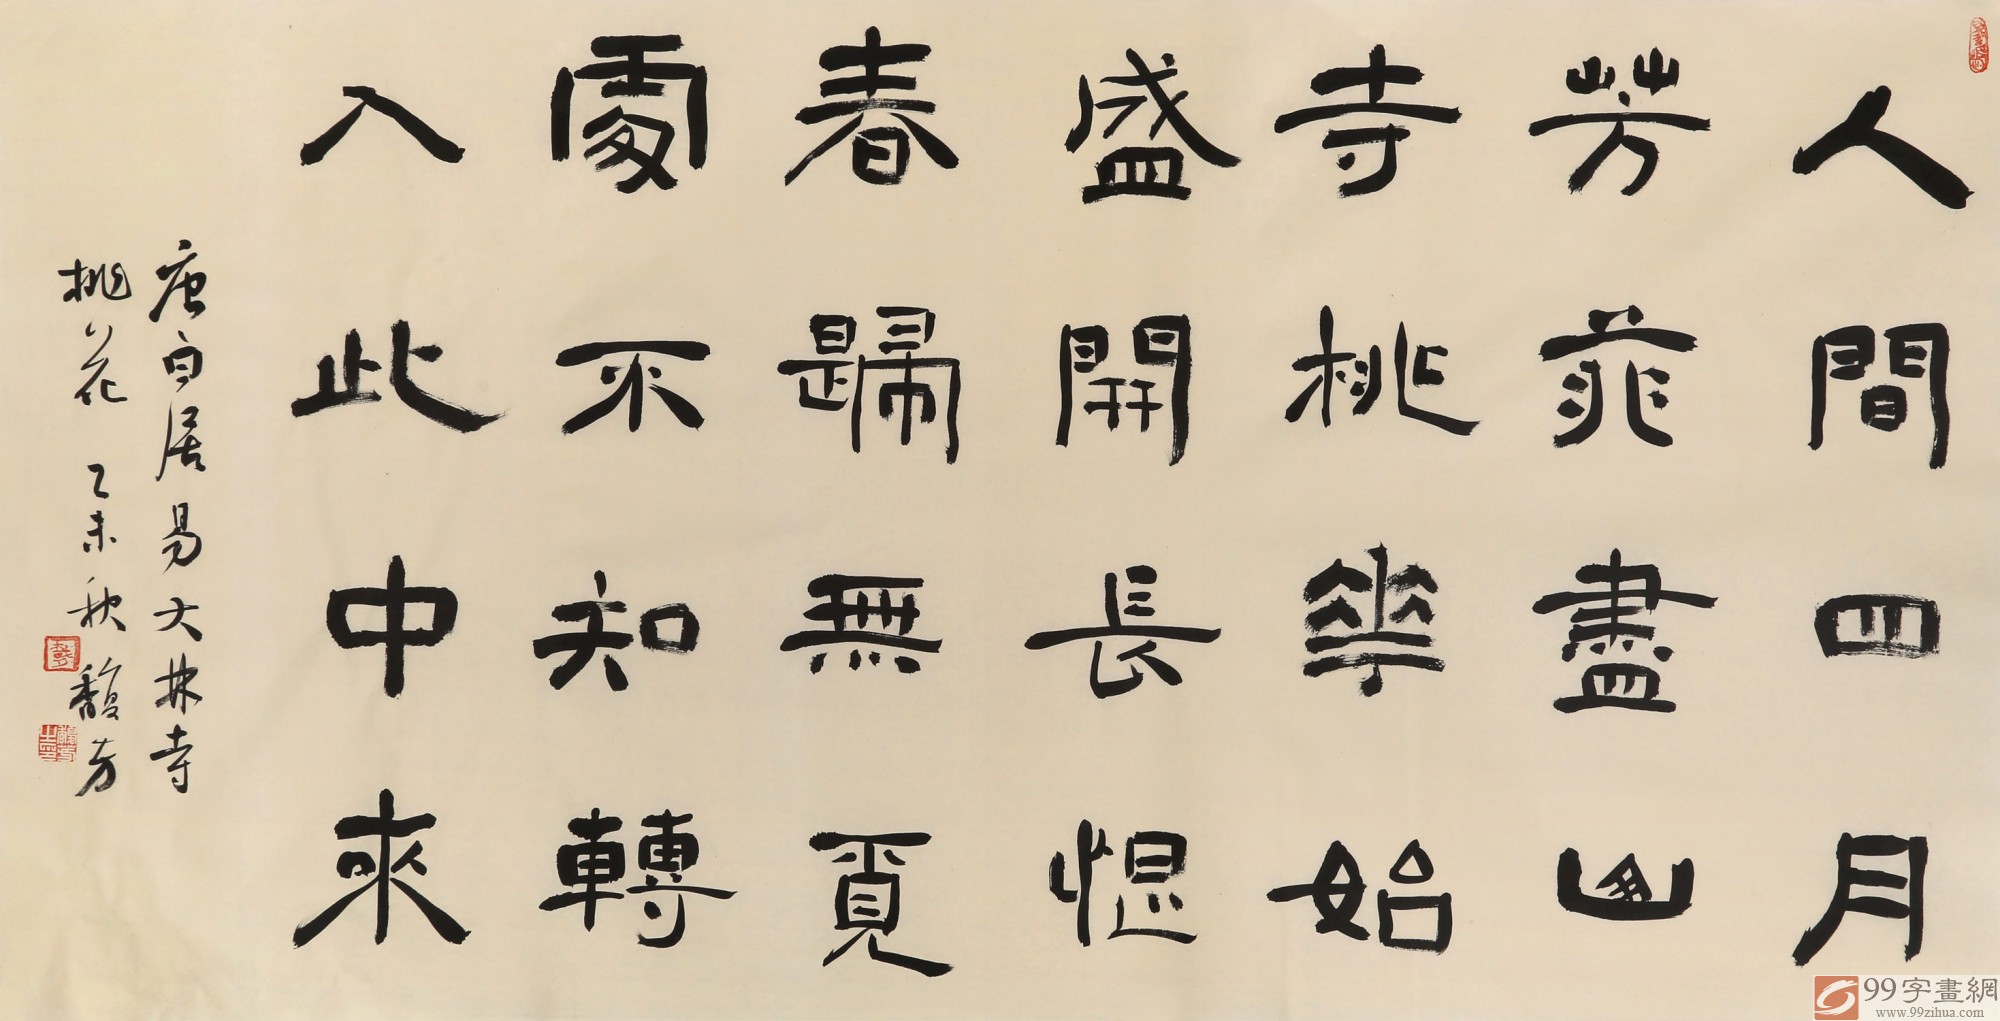 人間四月
芳菲盡山
寺桃華始
盛開長恨
春歸無覓
處不知轉
入此中來
唐白居易大林寺
桃花 乙未秋 馥芳
99字畫網
www.99zihua.com